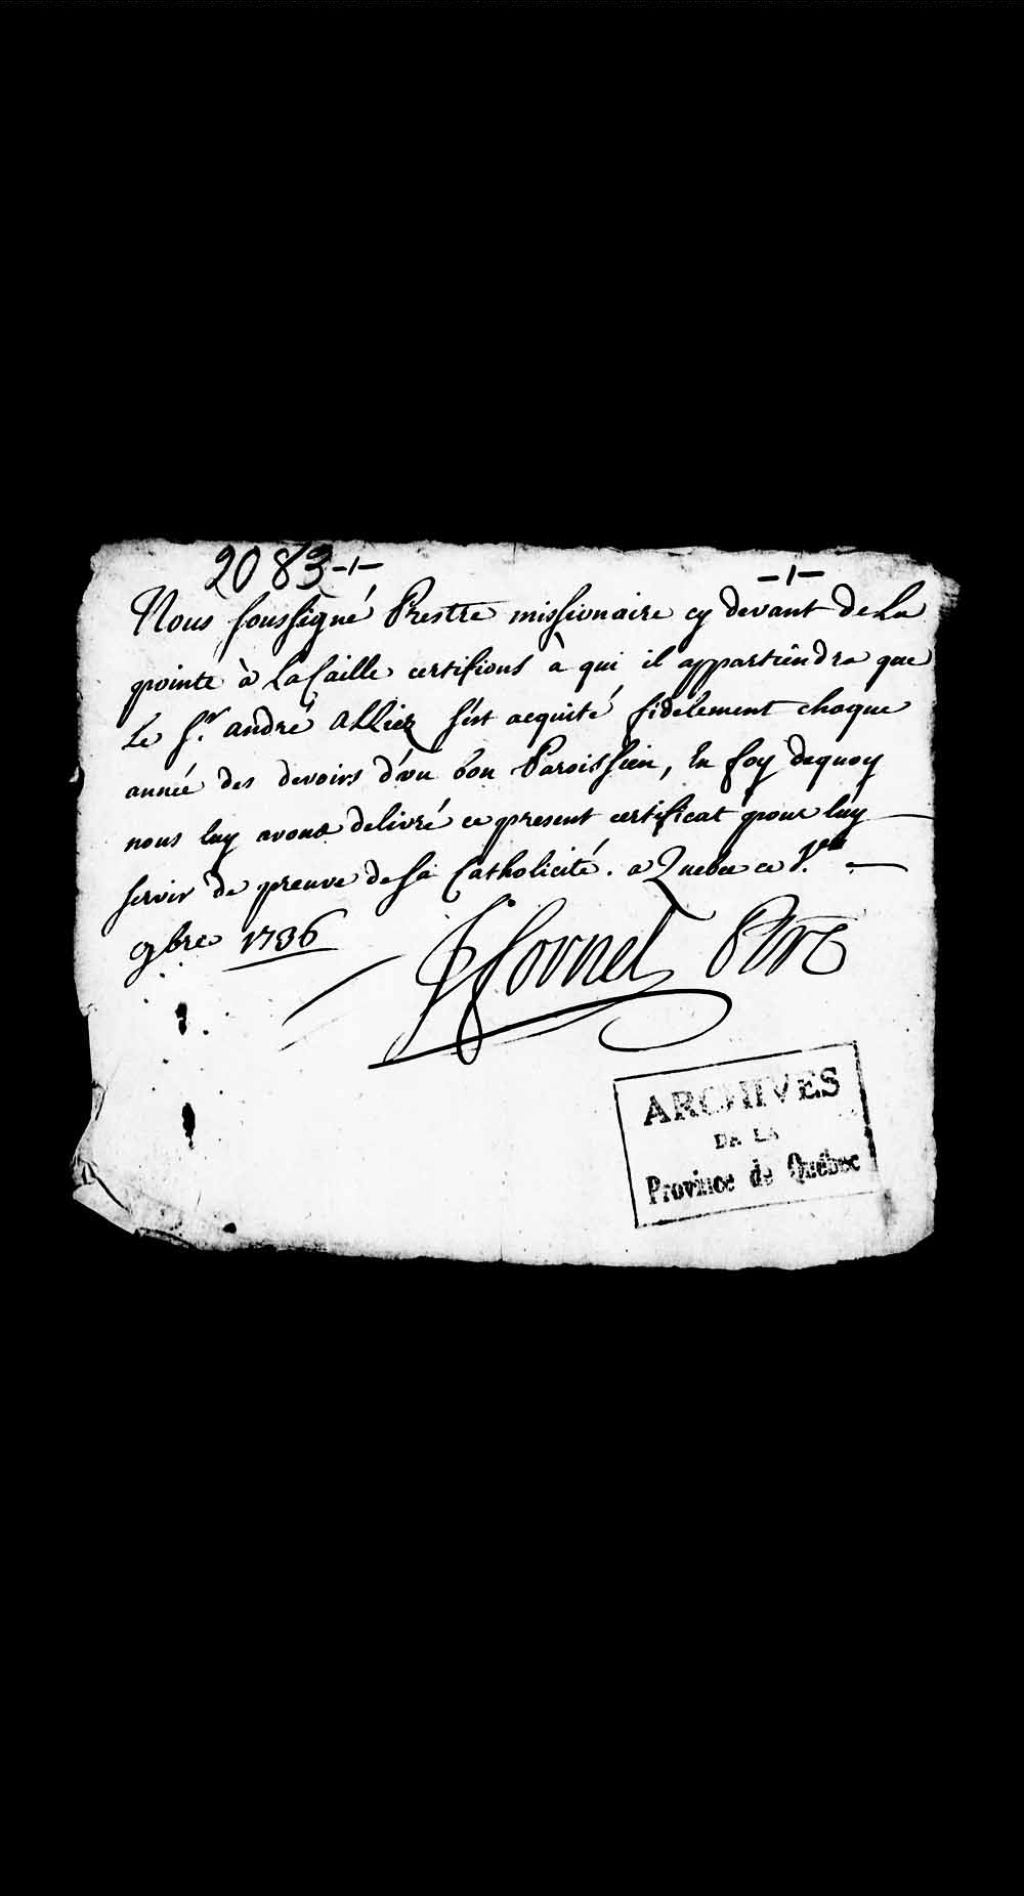 2083-1-
-1-
Nous soussigné Prestre missionaire cy devant de La
pointe à La Caille certifions à qui il appartiendra que
Le Sr. andré allier s'est acquité fidelement chaque
année des devoirs d'un bon Paroissien, En foy dequoy
nous luy avons delivré ce present certificat pour luy
servir de preuve de sa Catholicité. a Quebec ce
9bre 1736
Ptre
ARCHIVES
DE LA
Province de Québec